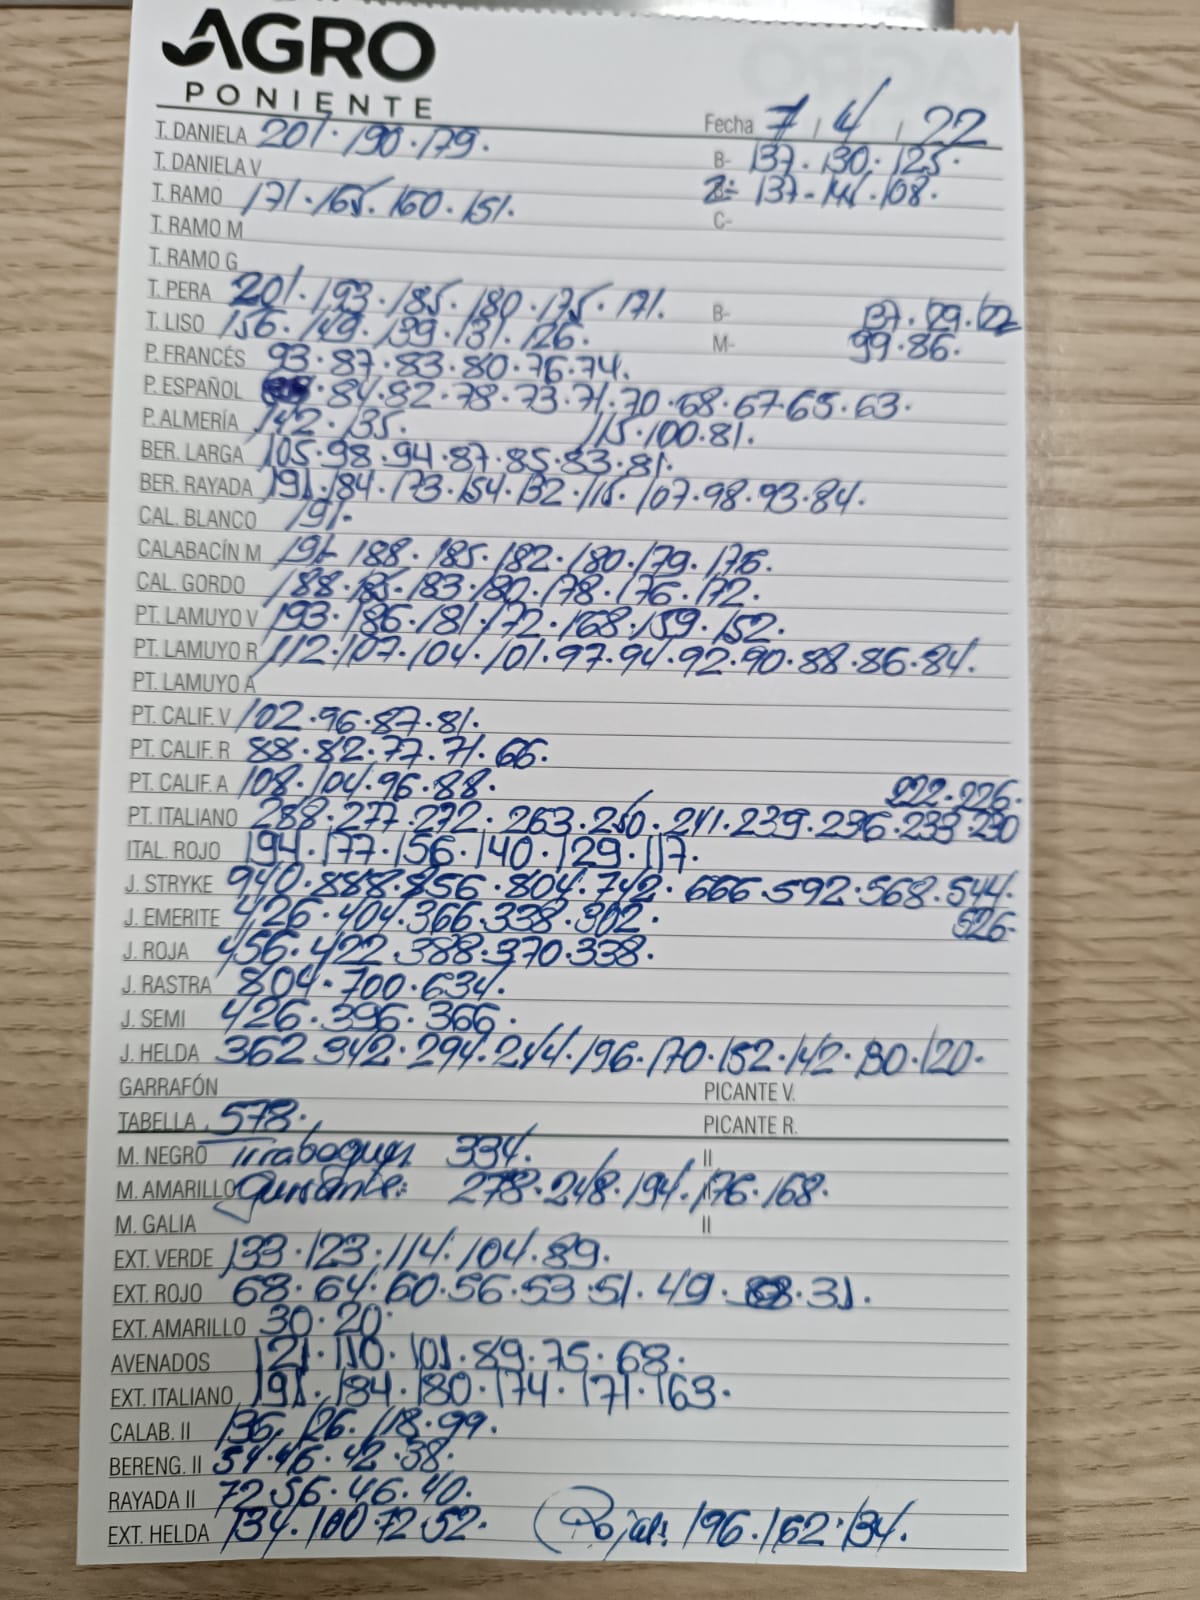 AGRO
PONIENTE
Fecha 7 / 4 / 22
T. DANIELA 201. 190. 179. B- 137. 130. 125.
T. DANIELA V 137. 114. 108.
T. RAMO 171. 165. 160. 151. C-
T. RAMO M
T. RAMO G
T. PERA 201. 193. 185. 180. 175. 171. B- 137. 129. 122
T. LISO 156. 149. 139. 131. 126. M- 99. 86.
P. FRANCÉS 93. 87. 83. 80. 76. 74.
P. ESPAÑOL 84. 82. 78. 73. 71. 70. 68. 67. 65. 63.
P. ALMERÍA 142. 135. 115. 100. 81.
BER. LARGA 105. 98. 94. 87. 85. 83. 81.
BER. RAYADA 191. 184. 173. 154. 132. 115. 107. 98. 93. 84.
CAL. BLANCO 191.
CALABACÍN M 191- 188. 185. 182. 180. 179. 176.
CAL. GORDO 188. 185. 183. 180. 178. 176. 172.
PT. LAMUYO V 193. 186. 181. 172. 168. 159. 152.
PT. LAMUYO R 112. 107. 104. 101. 97. 94. 92. 90. 88. 86. 84.
PT. LAMUYO A
PT. CALIF. V 102. 96. 87. 81.
PT. CALIF. R 88. 82. 77. 71. 66.
PT. CALIF. A 108. 104. 96. 88. 222. 226.
PT. ITALIANO 288. 277. 272. 263. 250. 241. 239. 236. 233. 230
ITAL. ROJO 194. 177. 156. 140. 129. 117.
J. STRYKE 940. 888. 856. 804. 742. 666. 592. 568. 544.
J. EMERITE 426. 404. 366. 338. 302. 526.
J. ROJA 456. 422. 388. 370. 338.
J. RASTRA 804. 700. 634.
J. SEMI 426. 396. 366.
J. HELDA 362. 342. 294. 244. 196. 170. 152. 142. 130. 120.
GARRAFÓN PICANTE V.
TABELLA 578. PICANTE R.
M. NEGRO Tirabeques 334. II
M. AMARILLO Guisante: 278. 248. 194. 176. 168. II
M. GALIA II
EXT. VERDE 133. 123. 114. 104. 89.
EXT. ROJO 68. 64. 60. 56. 53. 51. 49. 31.
EXT. AMARILLO 30. 20.
AVENADOS 121. 110. 101. 89. 75. 68.
EXT. ITALIANO 191. 184. 180. 174. 171. 163.
CALAB. II 136. 126. 118. 99.
BERENG. II 54. 46. 42. 38.
RAYADA II 72. 56. 46. 40.
EXT. HELDA 134. 100. 72. 52. Rojas: 196. 162. 134.